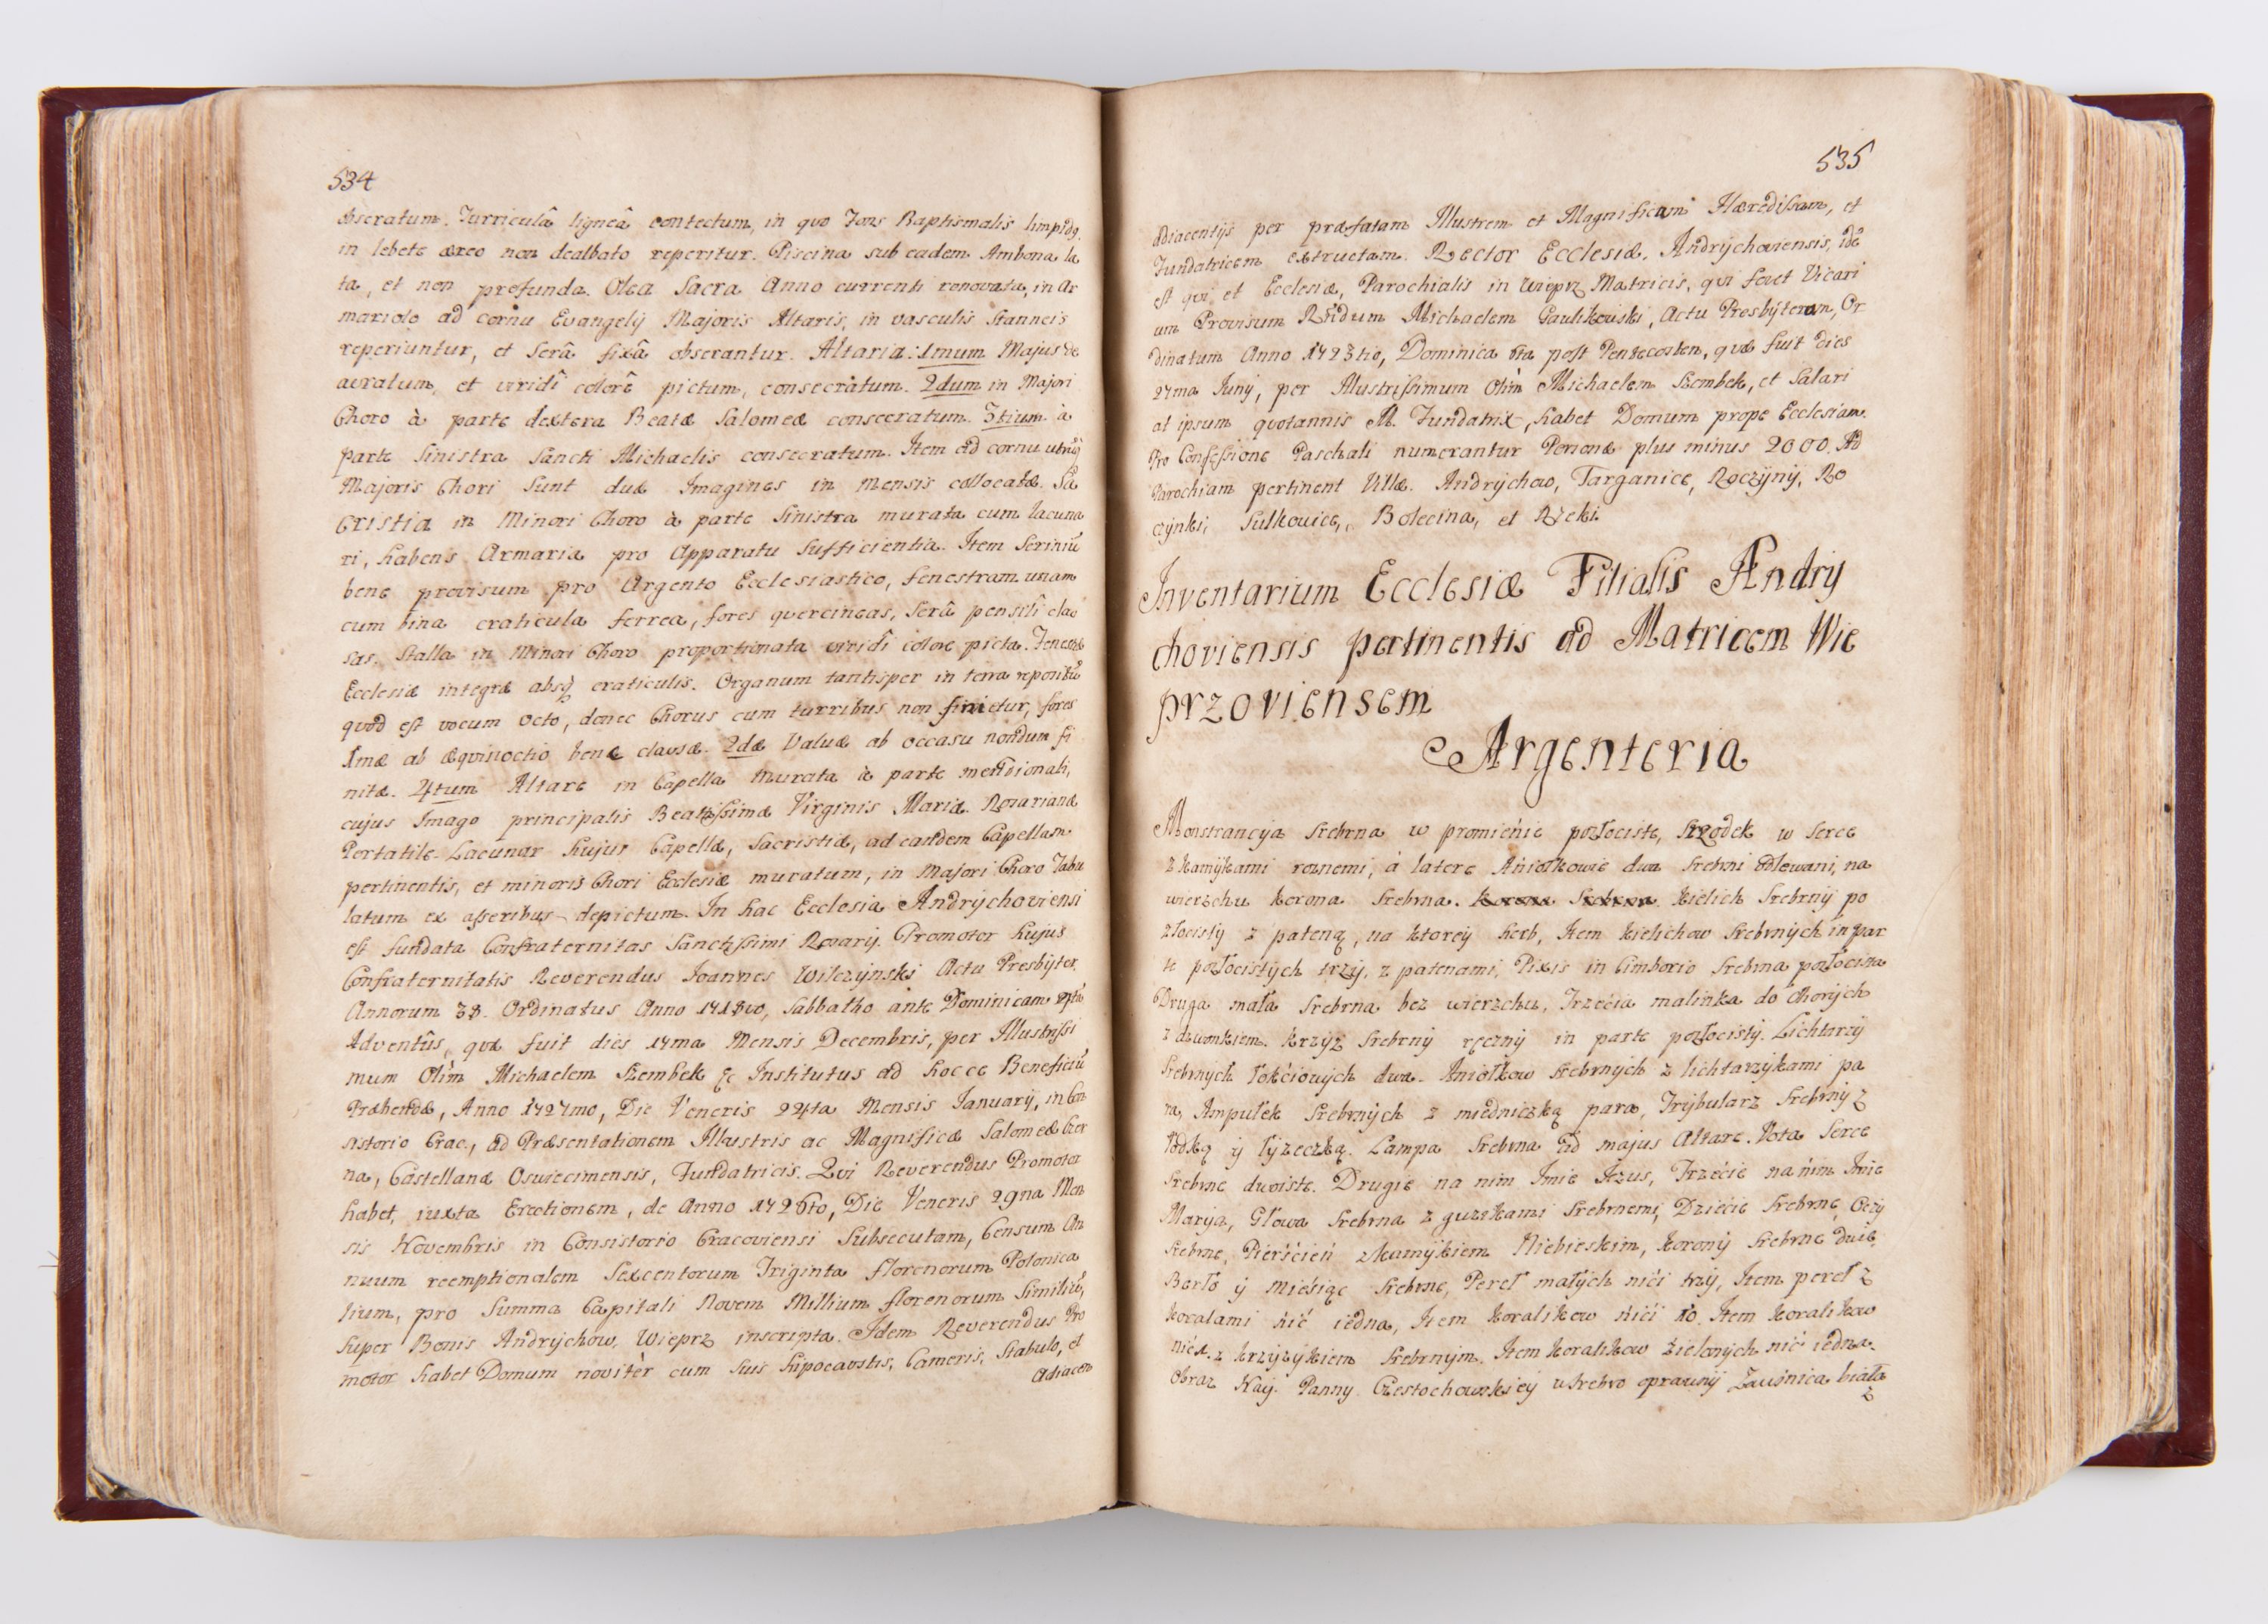 534
obseratum. Turriculâ ligneâ contectum, in quo Fons Baptismalis limpidq.
in lebete æreo non dealbato reperitur. Piscina sub eadem Ambona la
ta, et non profunda. Olea Sacra Anno currenti renovata, in Ar
mariolo ad cornu Evangelÿ Majoris Altaris, in vasculis Stanneis
reperiuntur, et Serâ fixâ obserantur. Altaria: 1mum Majus de
auratum, et viridî colorê pictum, consecratum. 2dum in Majori
Choro à parte dextera Beatæ Salomeæ consecratum. 3tium à
parte Sinistra Sancti Michaelis consecratum. Item ad cornu utriusq
Majoris Chori Sunt duæ Imagines in Mensis collocatæ. Sa
cristia in Minori Choro à parte Sinistra murata cum lacuna
ri, habens Armaria pro Apparatu Sufficientia. Item Scriniũ
bene provisum pro Argento Ecclesiastico, fenestram unam
cum bina craticula ferrea, fores quercineas, Serâ pensilî clau
sas. Stalla in Minori Choro proportionata viridî colore picta. Fenestræ
Ecclesiæ integræ absq craticulis. Organum tantisper in terra repositũ
quod est vocum octo, donec Chorus cum turribus non finietur, fores
1mæ ab æquinoctio bene clausæ. 2dæ Valvæ ab occasu nondum fi
nitæ. 4tum Altare in Capella murata à parte meridionali,
cujus Imago principalis Beatissimæ Virginis Mariæ Rosarianæ
Portatile. Lacunar hujus Capellæ, Sacristiæ, ad eandem Capellam
pertinentis, et minoris Chori Ecclesiæ muratum, in Majori Choro Tabu
latum ex asseribus depictum. In hac Ecclesia Andrychoviensi
est fundata Confraternitas Sanctissimi Rosarÿ. Promotor hujus
Confraternitatis Reverendus Joannes Wilczÿnski Actu Presbÿter
Annorum 38. Ordinatus Anno 1718vo, Sabbatho ante Dominicam
Adventûs, quæ fuit dies 17ma Mensis Decembris, per Illustrissi
mum Olim Michaelem Szembek &c Institutus ad hocce Beneficiũ
Præbendæ, Anno 1727mo, Die Veneris 24ta Mensis Januarÿ, in Con
sistorio Crac., ad Præsentationem Illustris ac Magnificæ Salomeæ Czer
na, Castellanæ Osviecimensis, Fundatricis. Qui Reverendus Promotor
habet, iuxta Erectionem, de Anno 1726to, Die Veneris 29na Men
sis Novembris in Consistorio Cracoviensi Subsecutam, Censum An
nuum reemptionalem Sexcentorum Triginta florenorum Polonica
lium, pro Summa Capitali Novem Millium florenorum Similiũ,
super Bonis Andrÿchow, Wieprz inscripta. Idem Reverendus Pro
motor habet Domum novitèr cum suis hipocaustis, Cameris, Stabulo, et
Adiacen
535
Adiacentÿs per præfatam Illustrem et Magnificam Hæredissam, et
Fundatricem extructam. Rector Ecclesiæ Andrÿchoviensis, idẽ
est qui et Ecclesiæ, Parochialis in Wieprz Matricis, qui fovet Vicari
um Provisum Rñdum Michaelem Gaulikowski, Actu Presbÿterum, Or
dinatum Anno 1723tio, Dominica 6ta post Pentecosten, quæ fuit dies
27ma Junÿ, per Illustrissimum Olim Michaelem Szembek, et Salari
at ipsum quotannis M. Fundatrix, habet Domum prope Ecclesiam.
Pro Confessione Paschali numerantur Personæ plus minus 2000. Ad
Parochiam pertinent Villæ. Andrÿchow, Targanice, Roczÿnÿ, Ro
czÿnki, Sulkowice, Bolecina, et Rzeki.
Inventarium Ecclesiæ Filialis Andrÿ
choviensis pertinentis ad Matricem Wie
przoviensem
Argenteria
Monstrancÿa Srebrna w promienie pozłociste, Srzodek w Serce
z kamÿkami roznemi, à latere Aniołkowie dwa Srebrni odlewani, na
wierzchu korona Srebrna. Korona Srebrna kielich Srebrnÿ po
złocistÿ z pateną, na ktoreÿ herb, Item kielichow Srebrnÿch in par
te pozłocistÿch trzÿ, z patenami, Pixis in Cimborio Srebrna pozłocista
Druga mała Srebrna bez wierzchu, Trzecia malinka do Chorÿch
z dzwonkiem. Krzÿż Srebrnÿ ręcznÿ in parte pozłocistÿ. Lichtarzÿ
Srebrnÿch łokciowÿch dwa. Aniołkow Srebrnÿch z lichtarzÿkami pa
ra, Ampułek Srebrnÿch z miedniczką para, Trÿbularz Srebrnÿ z
łodką ÿ łÿżeczką. Lampa Srebrna ad majus Altare. Vota Serce
Srebrne dwoiste. Drugie na nim Imie Jezus, Trzecie na nim Imie
Marÿa, Głowa Srebrna z guzikami Srebrnemi, Dziecie Srebrne, Oczÿ
Srebrne, Pierścień z kamÿkiem Niebieskim, koronÿ Srebrne dwie,
Berło ÿ Miesiąc Srebrne, Pereł małÿch nici trzÿ, Item pereł z
koralami nić iedna, Item koralikow nici 10. Item koralikow
nić 1. z krzÿżÿkiem Srebrnÿm. Item koralikow zielonÿch nić iedna.
Obraz Naÿ. Pannÿ Częstochowskieÿ w Srebro oprawnÿ Zausnica biała
z